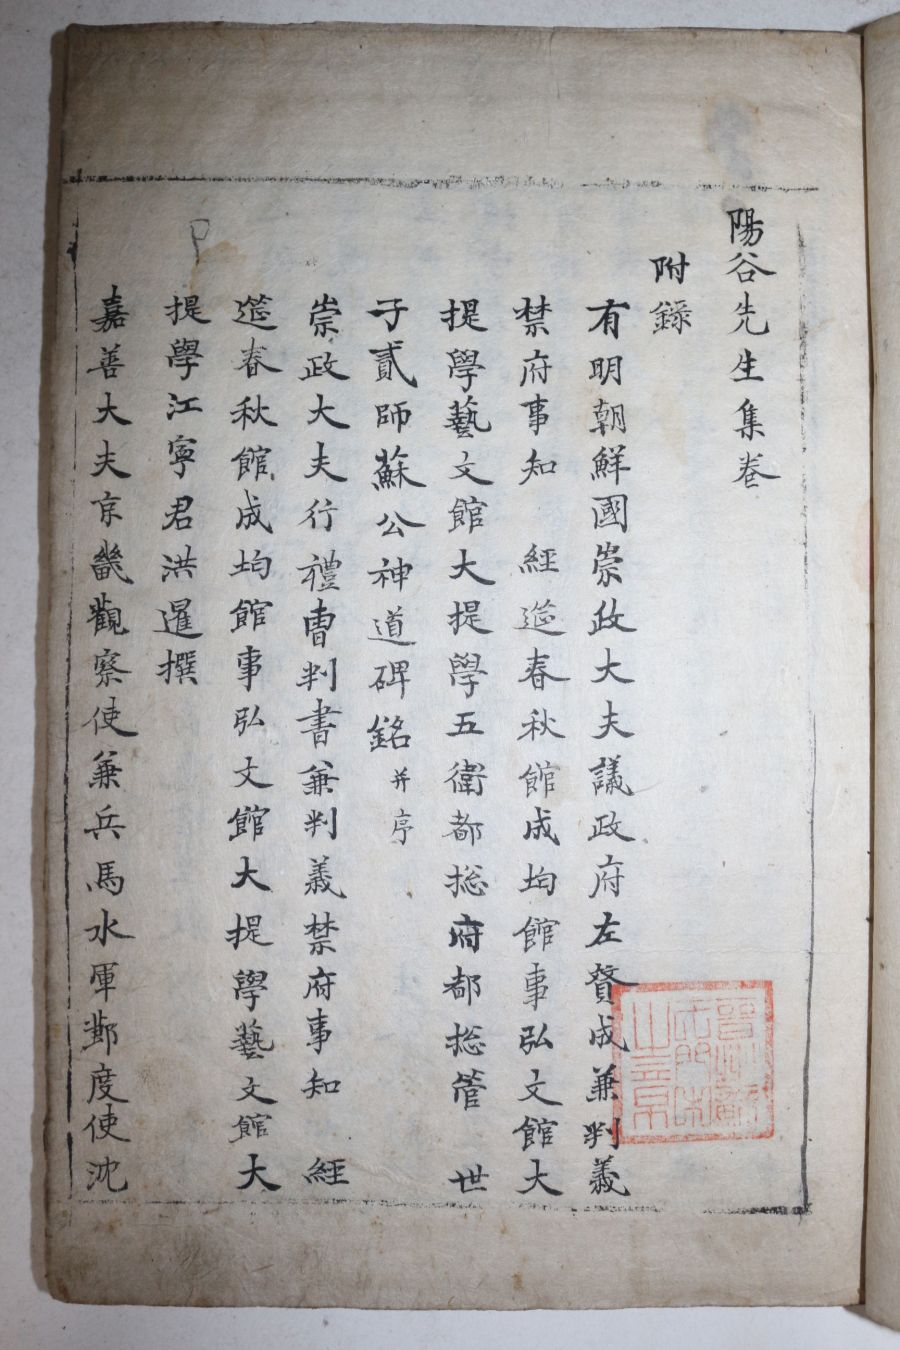 陽谷先生集卷
附錄
有明朝鮮國崇政大夫議政府左贊成兼判義
禁府事知　經筵春秋館成均館事弘文館大
提學藝文館大提學五衛都摠府都摠管　世
子貳師蘇公神道碑銘并序
崇政大夫行禮曹判書兼判義禁府事知　經
筵春秋館成均館事弘文館大提學藝文館大
提學江寧君洪暹撰
嘉善大夫京畿觀察使兼兵馬水軍節度使沈